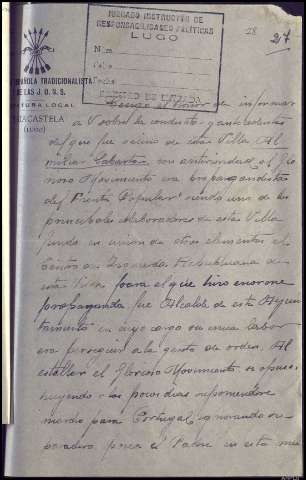 JUZGADO INSTRUCTOR DE
RESPONSABILIDADES POLÍTICAS
LUGO
28
27
Núm.
Fecha
REGISTRO DE ENTRADA
ESPAÑOLA TRADICIONALISTA
DE LAS J. O. N. S.
JEFATURA LOCAL
TRIACASTELA
(LUGO)
Tengo el honor de informar
a V sobre la conducta y antecedentes
del que fue vecino de esta Villa
con anterioridad al Glo
rioso Movimiento era propagandista
del Frente Popular siendo uno de los
principales elaboradores de esta Villa
fundó en union de otros elementos el
Centro de Izquierda Republicana de
esta Villa para el que hizo enorme
propaganda fue Alcalde de este Ayun
tamiento en cuyo cargo su unica labor
era perseguir a la gente de orden. Al
estallar el Glorioso Movimiento se opuso
huyendo a los pocos dias
para Portugal, ignorando su
paradero, pues el Padre en esta